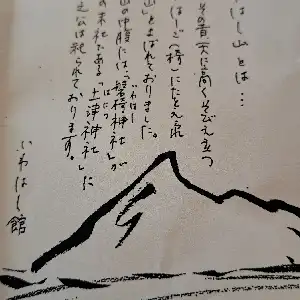 はし山とは…
その青天に高くそびえ立つ
はしご(椅)にたとえ
山」とよばれておりました。
山の中腹には、「磐椅神社」が
いわはし
の末社である「土津神社」に
はにつ
之公は祀られております。
いわはし館